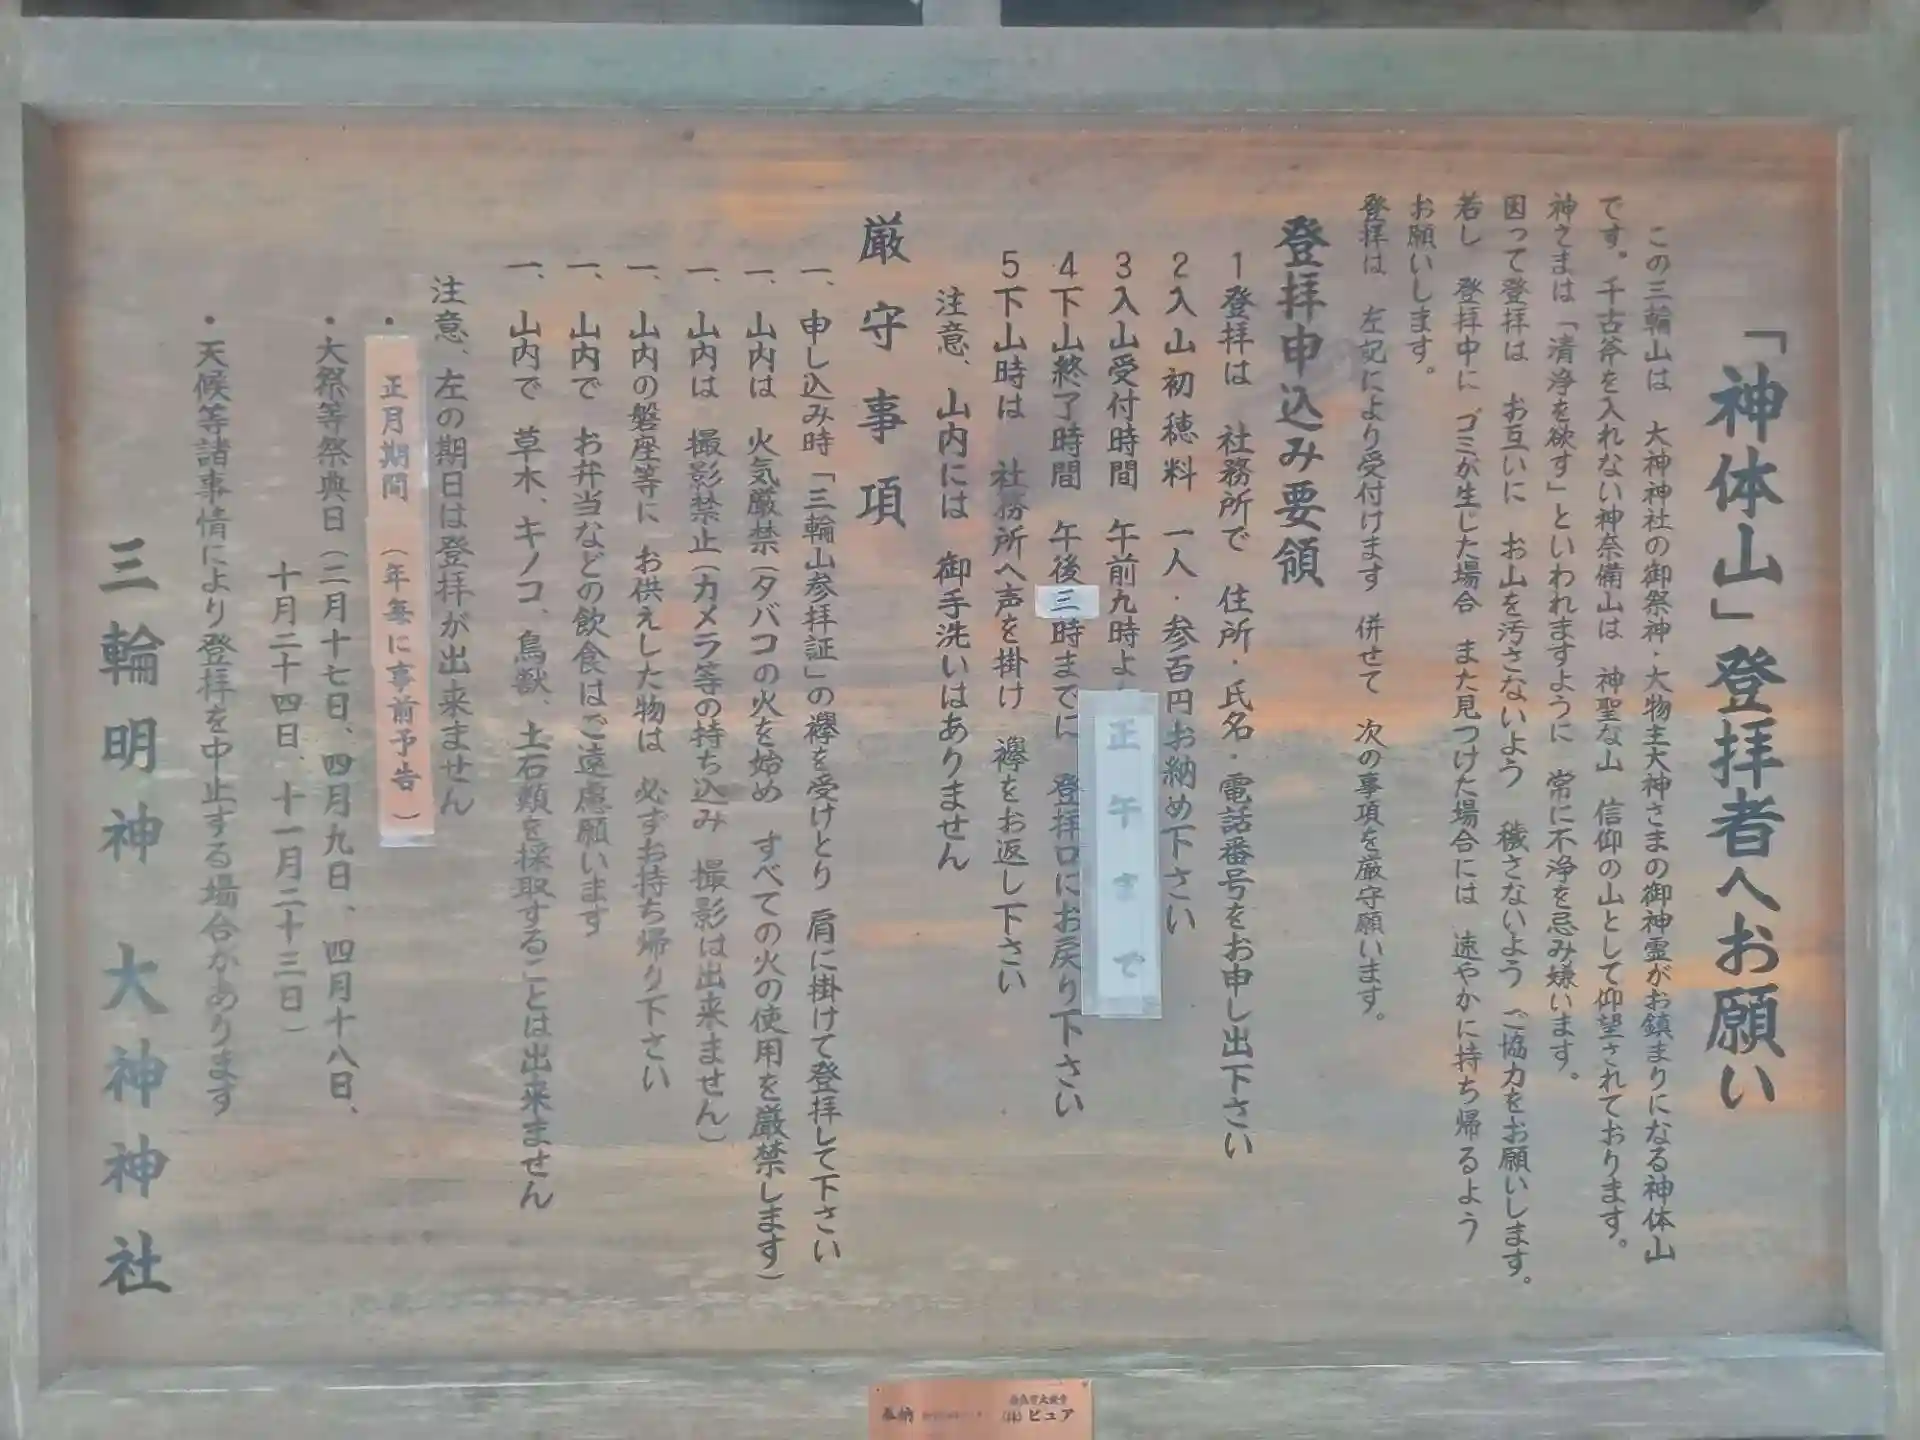 「神体山」登拝者へお願い
この三輪山は 大神神社の御祭神・大物主大神さまの御神霊がお鎮まりになる神体山
です。千古斧を入れない神奈備山は 神聖な山 信仰の山として仰望されております。
神さまは「清浄を欲す」といわれますように 常に不浄を忌み嫌います。
因って登拝は お互いに お山を汚さないよう 穢さないよう ご協力をお願いします。
若し 登拝中に ゴミが生じた場合 また見つけた場合には 速やかに持ち帰るよう
お願いします。
登拝は 左記により受付けます 併せて 次の事項を厳守願います。
登拝申込み要領
1 登拝は 社務所で 住所・氏名・電話番号をお申し出下さい
2 入山初穂料 一人・参百円お納め下さい
3 入山受付時間 午前九時よ 正午まで
4 下山終了時間 午後三時までに 登拝口にお戻り下さい
5 下山時は 社務所へ声を掛け 襷をお返し下さい
注意、山内には 御手洗いはありません
厳守事項
一、申し込み時「三輪山参拝証」の襷を受けとり 肩に掛けて登拝して下さい
一、山内は 火気厳禁(タバコの火を始め すべての火の使用を厳禁します)
一、山内は 撮影禁止(カメラ等の持ち込み 撮影は出来ません)
一、山内の磐座等に お供えした物は 必ずお持ち帰り下さい
一、山内で お弁当などの飲食はご遠慮願います
一、山内で 草木、キノコ、鳥獣、土石類を採取することは出来ません
注意、左の期日は登拝が出来ません
・正月期間 (年毎に事前予告)
・大祭等祭典日(二月十七日、四月九日、四月十八日、
十月二十四日、十一月二十三日)
・天候等諸事情により登拝を中止する場合があります
三輪明神 大神神社
奉納 (株)ピュア